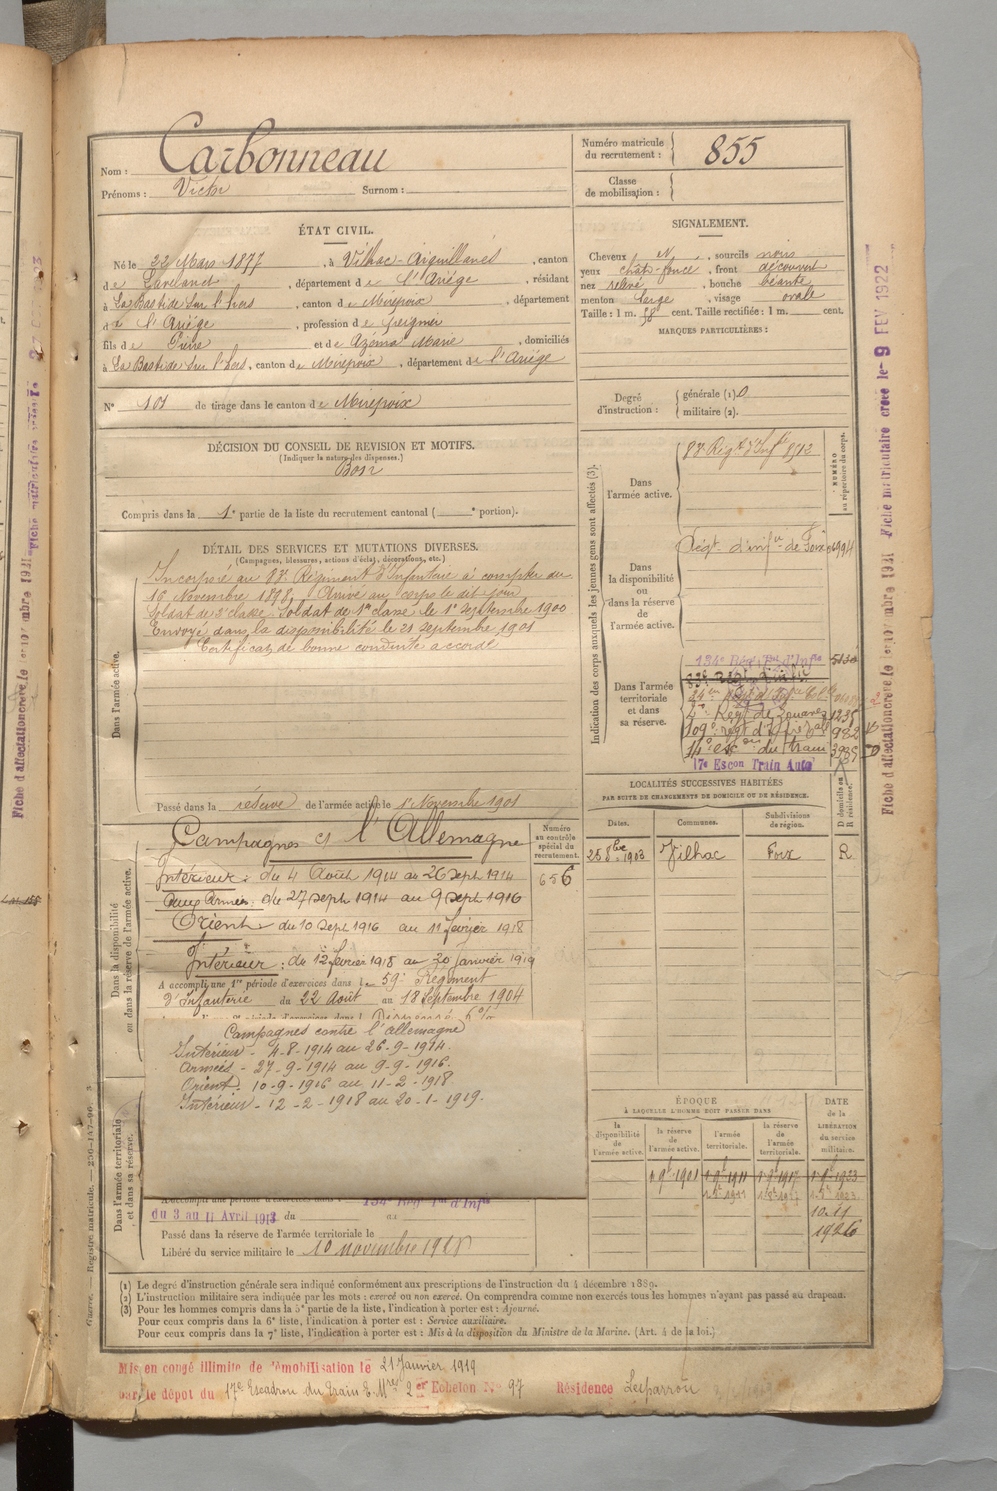 Nom : Carbonneau
Prénoms : Victor Surnom :
Numéro matricule du recrutement : 855
Classe de mobilisation :
ÉTAT CIVIL.
Né le 22 Mars 1877, à Vilhac-Aiguillanes, canton
de Lavelanet, département de l'Ariége, résidant
à La Bastide sur l'hers, canton de Mirepoix, département
de l'Ariége, profession de peigneur
fils de Pierre et de Azéma Marie, domiciliés
à La Bastide sur l'hers, canton de Mirepoix, département de l'Ariége
N° 101 de tirage dans le canton de Mirepoix
SIGNALEMENT.
Cheveux N, sourcils noirs
yeux chat. foncé, front découvert
nez relevé, bouche béante
menton large, visage ovale
Taille : 1 m. 58 cent. Taille rectifiée : 1 m. cent.
MARQUES PARTICULIÈRES :
Degré d'instruction : générale (1). 0
militaire (2).
DÉCISION DU CONSEIL DE REVISION ET MOTIFS.
(Indiquer la nature des dispenses.)
Bon
Compris dans la 1e partie de la liste du recrutement cantonal ( e portion).
DÉTAIL DES SERVICES ET MUTATIONS DIVERSES.
(Campagnes, blessures, actions d'éclat, décorations, etc.)
Dans l'armée active.
Incorporé au 83e Régiment d'Infanterie à compter du
16 Novembre 1898, Arrivé au corps le dit jour
Soldat de 2e classe. Soldat de 1re classe le 1er Septembre 1900
Envoyé dans la disponibilité le 21 Septembre 1901
Certificat de bonne conduite accordé
Passé dans la réserve de l'armée active le 1er Novembre 1901
Indication des corps auxquels les jeunes gens sont affectés (3).
NUMÉRO au répertoire du corps.
Dans l'armée active.
83e Régt d'Inf
Dans la disponibilité ou dans la réserve de l'armée active.
Régt. d'infie de Foix
Dans l'armée territoriale et dans sa réserve.
134e Rég. Ter. d'Infie
4e Régt de Zouaves 1235
109e régt d'Artie 982
14e escon du train 3935
17e Escon Train Auto
LOCALITÉS SUCCESSIVES HABITÉES
PAR SUITE DE CHANGEMENTS DE DOMICILE OU DE RÉSIDENCE.
D domicile ou R résidence.
Dates. Communes. Subdivisions de région.
25 8bre 1903 Vilhac Foix R
Dans la disponibilité ou dans la réserve de l'armée active.
Numéro au contrôle spécial du recrutement.
656
Campagnes ct l'Allemagne
Intérieur : du 4 Août 1914 au 26 sept 1914
aux Armées : du 27 sept 1914 au 9 sept 1916
Orient du 10 sept 1916 au 11 février 1918
Intérieur : du 12 février 1918 au 20 janvier 1919
A accompli une 1re période d'exercices dans le 59e Régiment
d'Infanterie du 22 Août au 18 Septembre 1904
Campagnes contre l'allemagne
Intérieur - 4-8-1914 au 26-9-1914.
Armées - 27-9-1914 au 9-9-1916.
Orient - 10-9-1916 au 11-2-1918
Intérieur - 12-2-1918 au 20-1-1919.
Dans l'armée territoriale et dans sa réserve.
A accompli une période d'exercices dans : 134e Rég. Ter d'Infie
du 3 au 11 Avril 1913 du au
Passé dans la réserve de l'armée territoriale le
Libéré du service militaire le 10 novembre 1926
ÉPOQUE
À LAQUELLE L'HOMME DOIT PASSER DANS
la disponibilité de l'armée active.
la réserve de l'armée active.
l'armée territoriale.
la réserve de l'armée territoriale.
DATE de la LIBÉRATION du service militaire.
1er 9bre 1901 1er 9bre 1911 1er 9bre 1917 1er 9bre 1923
10.11
1926
(1) Le degré d'instruction générale sera indiqué conformément aux prescriptions de l'instruction du 4 décembre 1889.
(2) L'instruction militaire sera indiquée par les mots : exercé ou non exercé. On comprendra comme non exercés tous les hommes n'ayant pas passé au drapeau.
(3) Pour les hommes compris dans la 5e partie de la liste, l'indication à porter est : Ajourné.
Pour ceux compris dans la 6e liste, l'indication à porter est : Service auxiliaire.
Pour ceux compris dans la 7e liste, l'indication à porter est : Mis à la disposition du Ministre de la Marine. (Art. 4 de la loi.)
Mis en congé illimité de démobilisation le 21 Janvier 1919
par le dépôt du 17e Escadron du Train E.Mres 2e Echelon No 97 Résidence Lesparrou
Guerre. — Registre matricule.
Fiche matriculaire créée le 9 FEV 1922